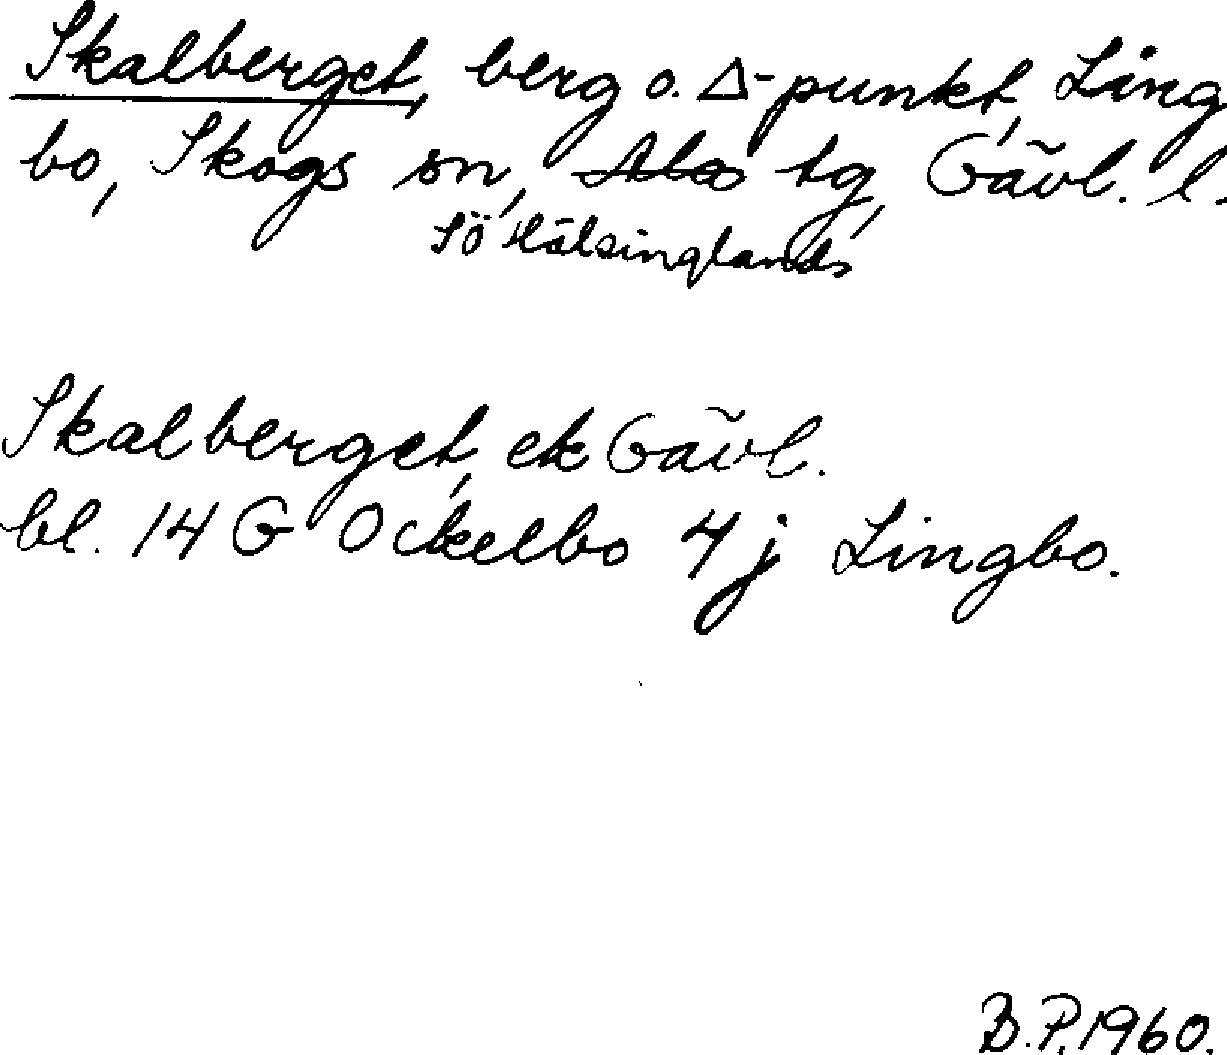 Skalberget, berg o. Δ-punkt, Ling
bo, Skogs sn, Ala tg, Gävl. l.
Sö Hälsinglands
Skalberget, ek Gävl.
bl. 14 G Ockelbo 4 j Lingbo.
B.P. 1960.